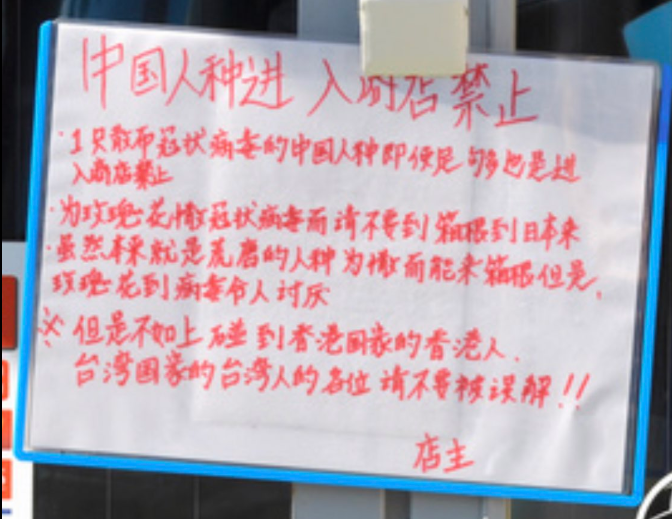 中国人种进入商店禁止
・1只散布冠状病毒的中国人种即便是狗也是进
入商店禁止
・为玫瑰花撒冠状病毒而请不要到箱根到日本来
・虽然本来就是荒磨的人种为撒而能来箱根但是,
玫瑰花到病毒令人讨厌
※但是不如上碰到香港国家的香港人.
台湾国家的台湾人的各位请不要被误解!!
店主